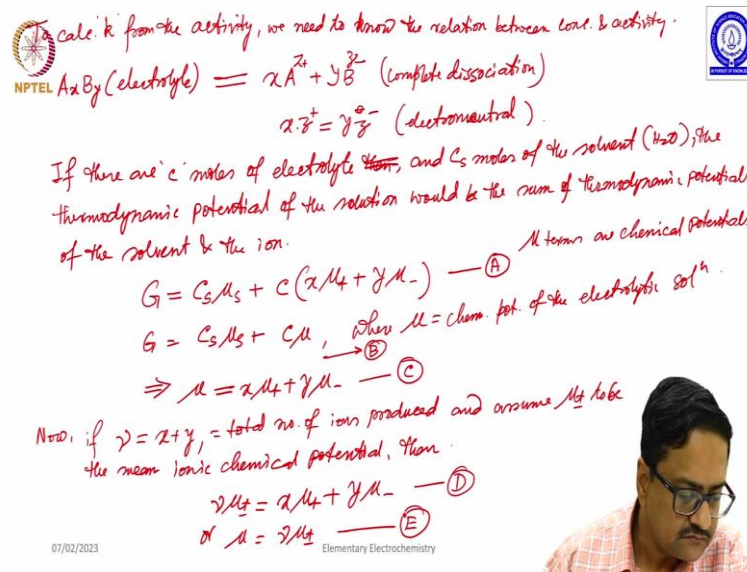 To calc. k from the activity, we need to know the relation between conc. & activity.
NPTEL
AxBy (electrolyte) = xA^z+ + yB^z- (complete dissociation)
x.z^+ = y z^- (electroneutral).
If there are 'c' moles of electrolyte and Cs moles of the solvent (H2O), the
thermodynamic potential of the solution would be the sum of thermodynamic potential
of the solvent & the ion.
μ terms are chemical potentials
G = Csμs + C(xμ+ + yμ-) — (A)
G = Csμs + Cμ, where μ = chem. pot. of the electrolytic solⁿ.
→ (B)
⇒ μ = xμ+ + yμ- — (C)
Now, if ν = x+y, = total no. of ions produced and assume μ± to be
the mean ionic chemical potential, then
νμ± = xμ+ + yμ- — (D)
or μ = νμ± — (E)
07/02/2023
Elementary Electrochemistry